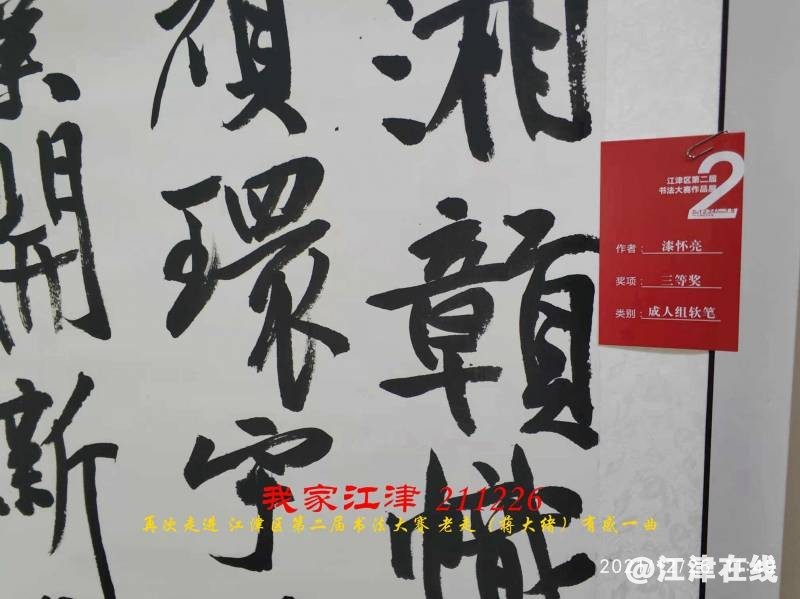 湘贑幟
環宇
業開新
江津区第二届
书法大赛作品展
2
作者：漆怀亮
奖项：三等奖
类别：成人组软笔
我家江津 211226
再次走进 江津区第二届书法大赛 老走（蒋大绪）有感一曲
@江津在线